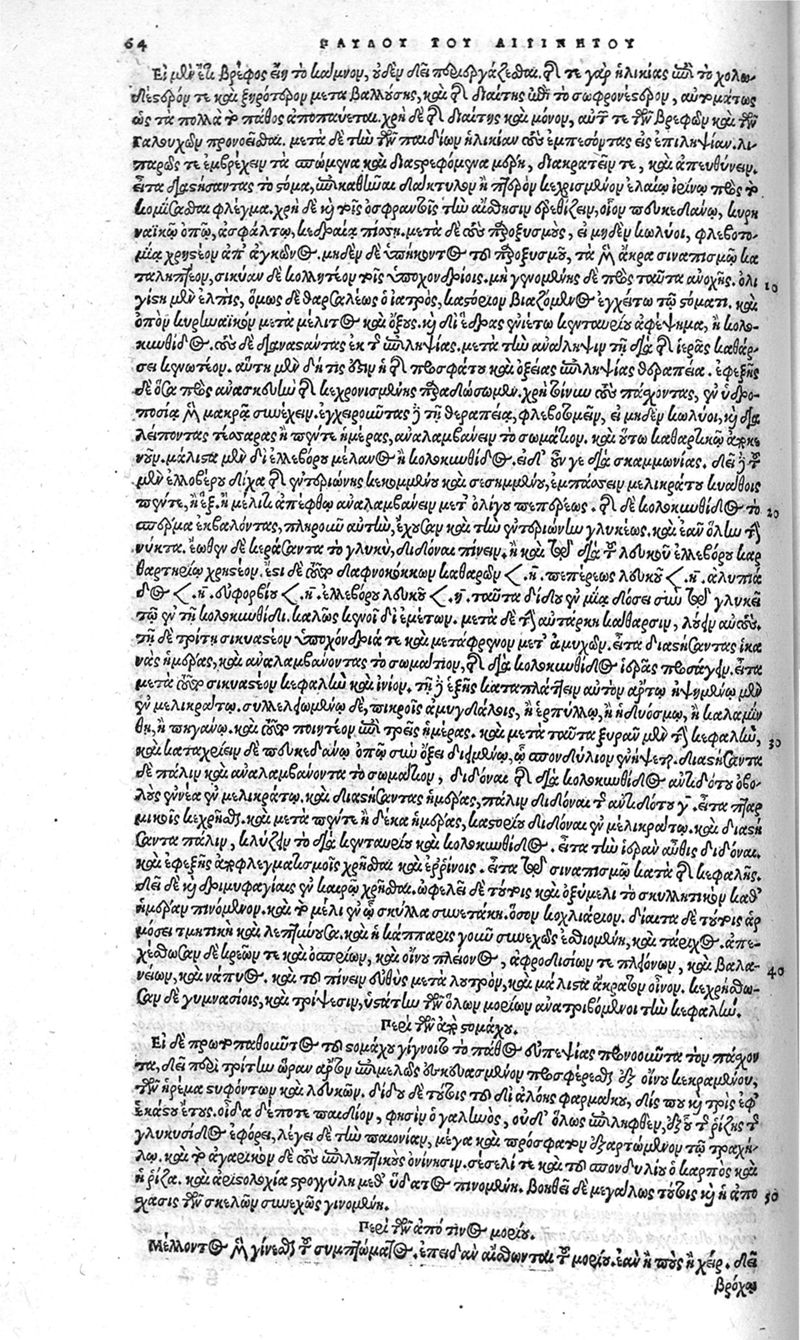 64 ΠΑΥΛΟΥ ΤΟΥ ΑΙΓΙΝΗΤΟΥ
Εἰ μὲν ἔτι βρέφος εἴη τὸ κάμνον, οὐδὲν δεῖ περιεργάζεσθαι. διά τε γὰρ ἡλικίας ἐπὶ τὸ χολω-
δέστερόν τε καὶ ξηρότερον μεταβαλλούσης, καὶ διὰ διαίτης ἐπὶ τὸ σωφρονέστερον, αὐτομάτως
ὡς τὰ πολλὰ τὸ πάθος ἀποπαύεται. χρὴ δὲ διὰ διαίτης καὶ μόνον, αὐτῶν τε τῶν βρεφῶν καὶ τῶν
γαλουχῶν προνοεῖσθαι. μετὰ δὲ τὴν τῶν παιδίων ἡλικίαν τοὺς ἐμπεσόντας εἰς ἐπιληψίαν. λι-
παρῶς τε ἐμβρέχειν τὰ σπώμενα καὶ διαστρεφόμενα μέρη, διακρατεῖν τε, καὶ ἀπευθύνειν.
εἶτα διαστήσαντας τὸ στόμα, ἐπικαθεῖναι δάκτυλον ἢ πτερὸν κεχρισμένον ἐλαίῳ ἰρίνῳ πρὸς τὸ
κομίσασθαι φλέγμα. χρὴ δὲ καὶ τοῖς ὀσφραντοῖς τὴν αἴσθησιν ἐρεθίζειν, οἷον πευκεδάνῳ, κυρη
ναϊκῷ ὀπῷ, ἀσφάλτῳ, κεδρίᾳ πίσσῃ. μετὰ δὲ τοὺς παροξυσμοὺς, εἰ μηδὲν κωλύοι, φλεβοτο-
μίᾳ χρηστέον ἀπ' ἀγκῶνος. μηδὲν δὲ ὑπήκοντος τοῦ παροξυσμοῦ, τὰ μὲν ἄκρα σιναπισμῷ κα
ταληπτέον, σικύαν δὲ κολλητέον τοῖς ὑποχονδρίοις. μὴ γινομένης δὲ πρὸς ταῦτα ἀνοχῆς. ὀλί 10
γίστη μὲν ἐλπὶς, ὅμως δὲ θαρσαλέως ὁ ἰατρὸς, καστόριον βιαζόμενος ἐγχείτω τῷ στόματι. καὶ
ὀπὸν κυρηναϊκὸν μετὰ μέλιτος καὶ ὄξους. καὶ δι' ἕδρας ἐνιέτω κενταυρίου ἀφέψημα, ἢ κολο-
κυνθίδος. τοὺς δὲ διαναστάντας ἐκ τῆς ἐπιληψίας. μετὰ τὴν ἀνάληψιν τῇ διὰ τῆς ἱερᾶς καθάρ-
σει κενωτέον. αὕτη μὲν δή τις ἐστὶν ἡ διὰ προσφάτου καὶ ὀξείας ἐπιληψίας θεραπεία. ἐφεξῆς
δὲ ὅσα πρὸς ἀνασκευὴν διὰ κεχρονισμένης παραδώσομεν. χρὴ τοίνυν τοὺς πάσχοντας, ἐν ὑδρο-
ποσίᾳ μὲν μακρᾷ συνέχειν. ἐγχειροῦντας δὲ τῇ θεραπείᾳ, φλεβοτομεῖν, εἰ μηδὲν κωλύοι, καὶ δια
λείποντας τέσσαρας ἢ πέντε ἡμέρας, ἀναλαμβάνειν τὸ σωμάτιον. καὶ οὕτω καθαρτικῷ
μάλιστα μὲν δι' ἑλλεβόρου μέλανος ἢ κολοκυνθίδος. εἰ δ' οὖν γε διὰ σκαμμωνίας. δεῖ δὲ τοῦ
μὲν ἑλλεβόρου δίχα τῆς ἐντεριώνης κεκομμένου καὶ σεσησμένου, ἐμπάσσειν μελικράτου κυάθοις
πέντε, ἢ ἓξ. ἢ μέλιτι ἀπέφθῳ ἀναλαμβάνειν μετ' ὀλίγου πεπέρεως. τῆς δὲ κολοκυνθίδος τὸ 20
σπέρμα ἐκβαλόντας, πληροῦν αὐτὴν, ἔχουσαν καὶ τὴν ἐντεριώνην γλυκέως. καὶ ἐᾶν ὅλην τὴν
νύκτα. ἕωθεν δὲ κεράσαντα τὸ γλυκὺ, διδόναι πίνειν. ἢ καὶ τῷ διὰ τοῦ λευκοῦ ἑλλεβόρου καθ
θαρτηρίῳ χρηστέον. ἔστι δὲ τοῦτο δαφνοκόκκων καθαρῶν < .η. πεπέρεως λευκοῦ < .η. ἀλυπιά
δος < .η. εὐφορβίου < .η. ἑλλεβόρου λευκοῦ < .η. ταῦτα δίδου ἐν μίᾳ δόσει σὺν τῷ γλυκεῖ
τῷ ἐν τῇ κολοκυνθίδι. καλῶς κενοῖ δι' ἐμέτων. μετὰ δὲ τὴν αὐτάρκη κάθαρσιν, λούειν αὐτούς.
τῇ δὲ τρίτῃ σικυαστέον ὑποχόνδριά τε καὶ μετάφρενον μετ' ἀμυχῶν. εἶτα διαστήσαντας ἱκα
νὰς ἡμέρας, καὶ ἀναλαμβάνοντας τὸ σωμάτιον, τῆς διὰ κολοκυνθίδος ἱερᾶς προσάγειν. εἶτα
μετὰ τοῦτο σικυαστέον κεφαλὴν καὶ ἰνίον. τῇ δὲ ἑξῆς καταπλάττειν αὐτὸν ἄρτῳ ἡψημένῳ μὲν
ἐν μελικράτῳ. συλλειουμένῳ δὲ, πικροῖς ἀμυγδάλοις, ἢ ἑρπύλλῳ, ἢ ἡδυόσμῳ, ἢ καλαμίν
θῃ, ἢ πηγάνῳ. καὶ τοῦτο ποιητέον ἐπὶ τρεῖς ἡμέρας. καὶ μετὰ ταῦτα ξυρᾶν μὲν τὴν κεφαλὴν, 30
καὶ καταχρίειν δὲ πευκεδάνῳ ὀπῷ σὺν ὄξει διειμένῳ, ᾧ σπονδύλιον ἐνήψηται. διαστήσαντα
δὲ πάλιν καὶ ἀναλαμβάνοντα τὸ σωμάτιον, διδόναι τῆς διὰ κολοκυνθίδος ἀντιδότου ὀβο-
λοὺς ἐννέα ἐν μελικράτῳ. καὶ διαστήσαντας ἡμέρας, πάλιν διδόναι τῆς ἀντιδότου γ. εἶτα πταρ
μικοῖς κεχρῆσθαι. καὶ μετὰ πέντε ἢ δέκα ἡμέρας, καστορίου διδόναι ἐν μελικράτῳ. καὶ διαστή
σαντα πάλιν, κλύζειν τῷ διὰ κενταυρίου καὶ κολοκυνθίδος. εἶτα τὴν ἱερὰν αὖθις διδόναι.
καὶ ἐφεξῆς ἀποφλεγματισμοῖς χρῆσθαι καὶ ἐρρίνοις. εἶτα τῷ σιναπισμῷ κατὰ τῆς κεφαλῆς.
δεῖ δὲ καὶ δριμυφαγίαις ἐν καιρῷ χρῆσθαι. ὠφελεῖ δὲ τούτοις καὶ ὀξύμελι τὸ σκυλλητικὸν καθ'
ἡμέραν πινόμενον. καὶ τὸ μέλι ἐν ᾧ σκύλλα συνετάκη. ὅσον κοχλιάριον. δίαιτα δὲ τούτοις ἁρ
μόσει τμητικὴ καὶ λεπτύνουσα. καὶ ἡ κάππαρις γοῦν συνεχῶς ἐσθιομένη, καὶ τάριχος. ἀπε-
χέσθωσαν δὲ κρεῶν τε καὶ ὀσπρίων, καὶ οἴνου πλείονος, ἀφροδισίων τε πλειόνων, καὶ βαλα- 40
νείων, καὶ νάπυος. καὶ τοῦ πίνειν εὐθὺς μετὰ λουτρὸν, καὶ μάλιστα ἄκρατον οἶνον. κεχρήσθω-
σαν δὲ γυμνασίοις, καὶ τρίψεσιν, ὑστάτην τῶν ὅλων μορίων ἀνατριβόμενοι τὴν κεφαλήν.
Περὶ τῶν ἀπὸ στομάχου.
Εἰ δὲ πρωτοπαθοῦντος τοῦ στομάχου γίγνοιτο τὸ πάθος εὐπεψίας προνοοῦντα τὸν πάσχον
τα, δεῖ περὶ τρίτην ὥραν ἄρτον ἐπιμελῶς ἐσκευασμένον προσφέρεσθαι ἐξ οἴνου κεκραμένου,
τῶν ἠρέμα στυφόντων καὶ λευκῶν. δίδου δὲ τούτοις τοῦ δι' ἀλόης φαρμάκου, δίς που καὶ τρὶς ἐφ'
ἑκάστου ἔτους. οἶδα δέ ποτε παιδίον, φησὶν ὁ γαληνὸς, οὐδ' ὅλως ἐπιληφθὲν, ἐξ οὗ τῆς ῥίζης τῆς
γλυκυσίδος ἐφόρει, λέγει δὲ τὴν παιονίαν, μέγα καὶ πρόσφατον ἐξαρτώμενον τῷ τραχή-
λῳ. καὶ τὸ ἀγαρικὸν δὲ τοὺς ἐπιληπτικοὺς ὀνίνησιν. σέσελί τε καὶ τοῦ σπονδυλίου ὁ καρπὸς καὶ
ἡ ῥίζα. καὶ ἀριστολοχία στρογγύλη μεθ' ὕδατος πινομένη. βοηθεῖ δὲ μεγάλως τούτοις καὶ ἡ ἀπο 50
σχασις τῶν σκελῶν συνεχῶς γινομένη.
Περὶ τῶν ἀπό τινος μορίου.
Μέλλοντος μὲν γίνεσθαι τοῦ συμπτώματος. ἐπειδὰν αἴσθωνται τοῦ μορίου. ἐὰν ἢ ποὺς ἢ χείρ. δεῖ
βρόχοι